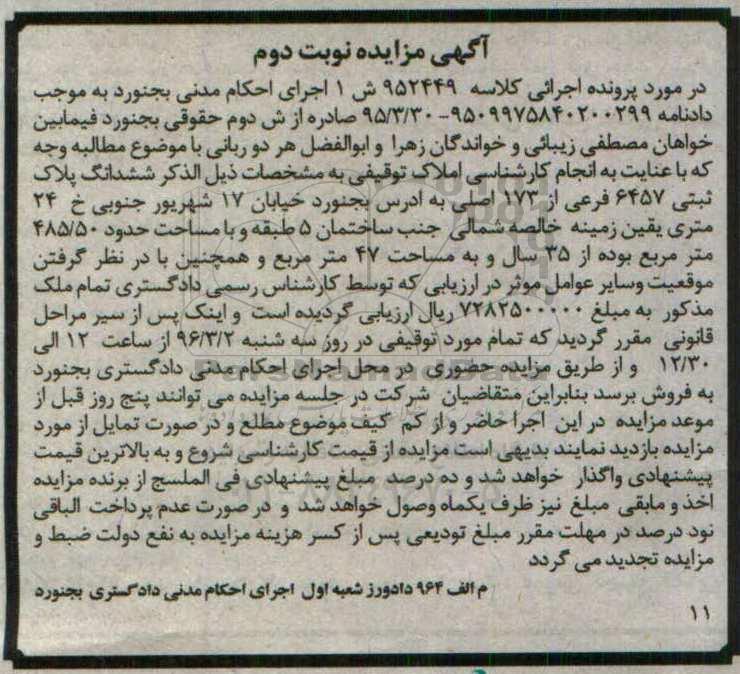 آگهی مزایده نوبت دوم
در مورد پرونده اجرائی کلاسه ۹۵۲۴۴۹ ش ۱ اجرای احکام مدنی بجنورد به موجب
دادنامه ۹۵۰۹۹۷۵۸۴۰۲۰۰۲۹۹-۹۵/۳/۳۰ صادره از ش دوم حقوقی بجنورد فیمابین
خواهان مصطفی زیبائی و خواندگان زهرا و ابوالفضل هر دو ربانی با موضوع مطالبه وجه
که با عنایت به انجام کارشناسی املاک توقیفی به مشخصات ذیل الذکر ششدانگ پلاک
ثبتی ۶۴۵۷ فرعی از ۱۷۳ اصلی به ادرس بجنورد خیابان ۱۷ شهریور جنوبی خ ۲۴
متری یقین زمینه خالصه شمالی جنب ساختمان ۵ طبقه و با مساحت حدود ۴۸۵/۵۰
متر مربع بوده از ۳۵ سال و به مساحت ۴۷ متر مربع و همچنین با در نظر گرفتن
موقعیت وسایر عوامل موثر در ارزیابی که توسط کارشناس رسمی دادگستری تمام ملک
مذکور به مبلغ ۷۲۸۲۵۰۰۰۰۰ ریال ارزیابی گردیده است و اینک پس از سیر مراحل
قانونی مقرر گردید که تمام مورد توقیفی در روز سه شنبه ۹۶/۳/۲ از ساعت ۱۲ الی
۱۲/۳۰ و از طریق مزایده حضوری در محل اجرای احکام مدنی دادگستری بجنورد
به فروش برسد بنابراین متقاضیان شرکت در جلسه مزایده می توانند پنج روز قبل از
موعد مزایده در این اجرا حاضر و از کم کیف موضوع مطلع و در صورت تمایل از مورد
مزایده بازدید نمایند بدیهی است مزایده از قیمت کارشناسی شروع و به بالاترین قیمت
پیشنهادی واگذار خواهد شد و ده درصد مبلغ پیشنهادی فی الملسج از برنده مزایده
اخذ و مابقی مبلغ نیز ظرف یکماه وصول خواهد شد و در صورت عدم پرداخت الباقی
نود درصد در مهلت مقرر مبلغ تودیعی پس از کسر هزینه مزایده به نفع دولت ضبط و
مزایده تجدید می گردد
م الف ۹۶۴ دادورز شعبه اول اجرای احکام مدنی دادگستری بجنورد
۱۱